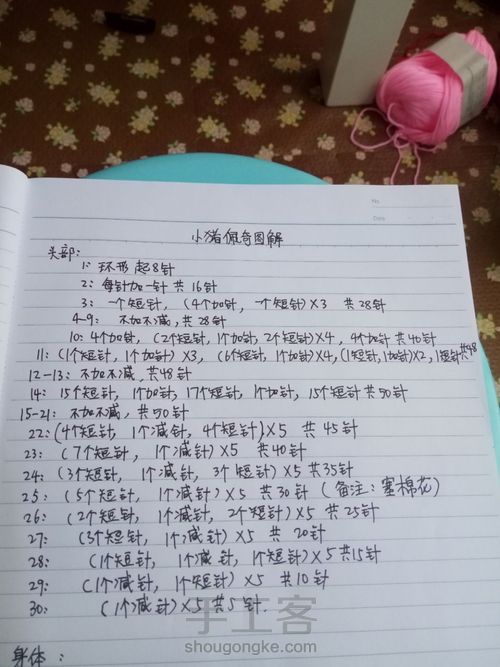 No.
Date
小猪佩奇图解
头部:
1: 环形起8针
2: 每针加一针 共16针
3: 一个短针, (4个加针, 一个短针)×3 共28针
4-9: 不加不减, 共28针
10: 4个加针, (2个短针, 1个加针, 2个短针)×4, 4个加针 共40针
11: (1个短针, 1个加针)×3, (6个短针, 1个加针)×4, (1短针, 1加针)×2, 1短针 共48
12-13: 不加不减, 共48针
14: 15个短针, 1个加针, 17个短针, 1个加针, 15个短针 共50针
15-21: 不加不减, 共50针
22: (4个短针, 1个减针, 4个短针)×5 共45针
23: (7个短针, 1个减针)×5 共40针
24: (3个短针, 1个减针, 3个短针)×5 共35针
25: (5个短针, 1个减针)×5 共30针 (备注: 塞棉花)
26: (2个短针, 1个减针, 2个短针)×5 共25针
27: (3个短针, 1个减针)×5 共20针
28: (1个短针, 1个减针, 1个短针)×5 共15针
29: (1个减针, 1个短针)×5 共10针
30: (1个减针)×5 共5针.
身体:
手工客
shougongke.com